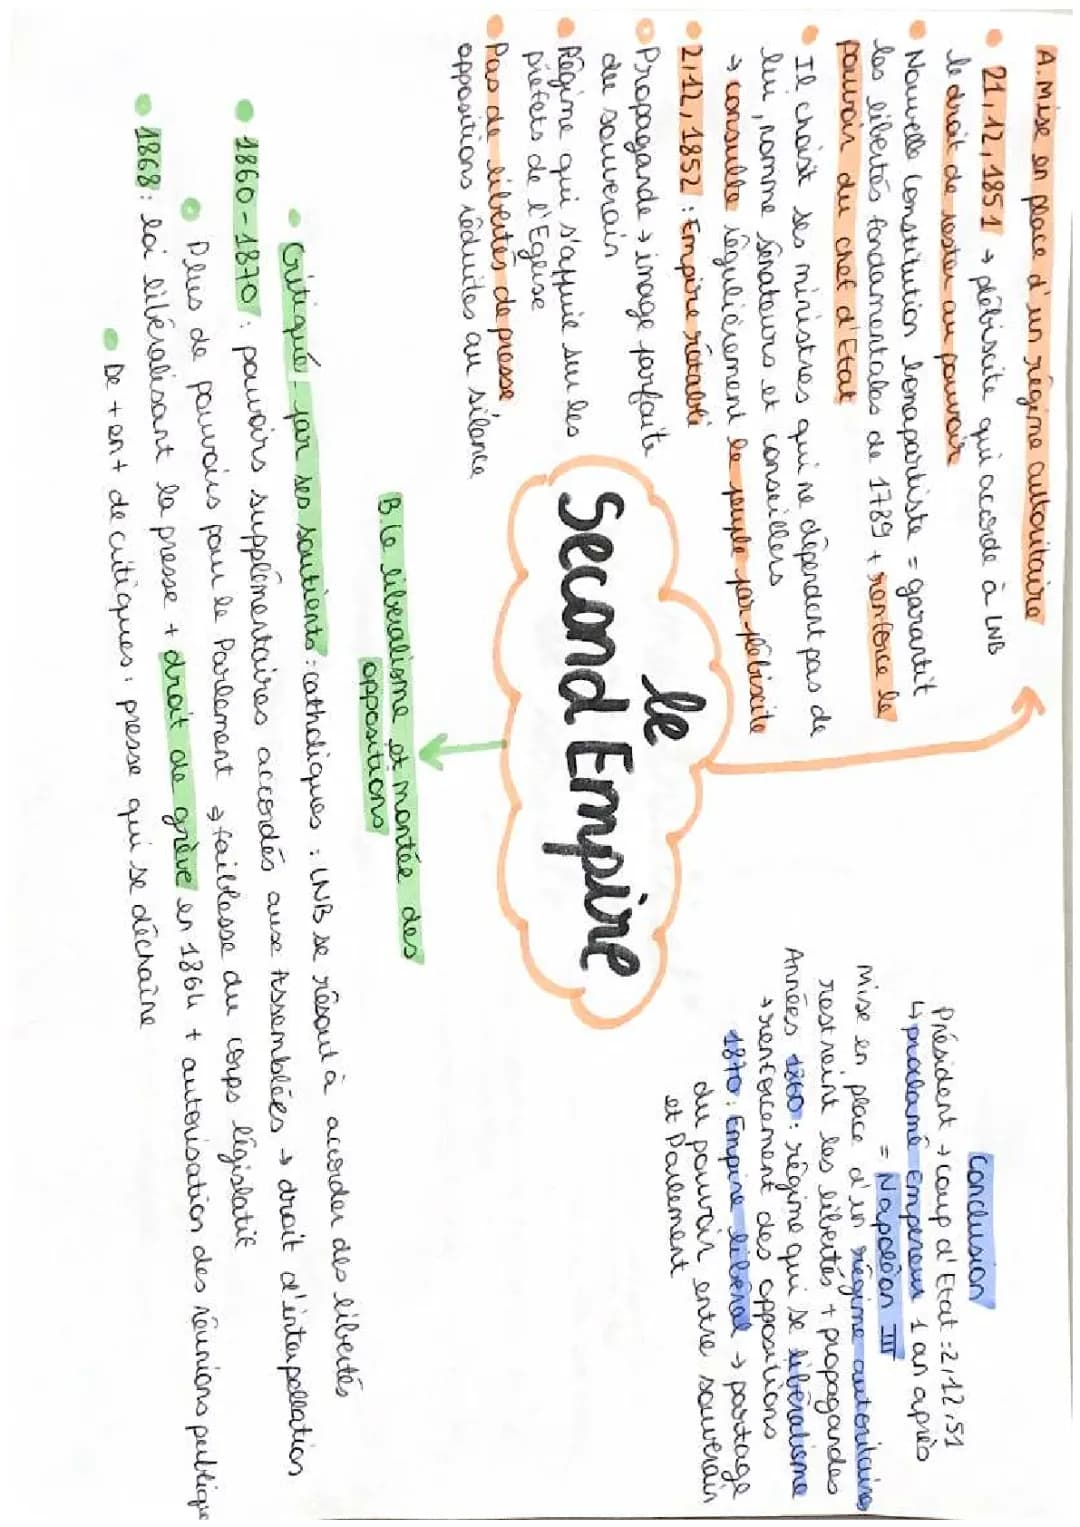 le
Second Empire
A. Mise en place d'un régime autoritaire
21,12,1851 → plébiscite qui accorde à LNB
le droit de rester au pouvoir
Nouvelle Constitution bonapartiste = garantit
les libertés fondamentales de 1789 + renforce le
pouvoir du chef d'Etat
Il choisit ses ministres qui ne dépendent pas de
lui, nomme sénateurs et conseillers
→ consulte régulièrement le peuple par plébiscite
2,12,1852 : Empire rétabli
Propagande → image parfaite
du souverain
Régime qui s'appuie sur les
préfets de l'Eglise
Pas de libertés de presse
oppositions réduites au silence
B. Le libéralisme et montée des
oppositions
Critiqué par ses soutients : cathdiques : LNB se résout à accorder des libertés
1860-1870 : pouvoirs supplémentaires accordés aux Assemblées → droit d'interpellation
Plus de pouvoirs pour le Parlement → faiblesse du corps législatif
1868 : loi libéralisant la presse + droit de grève en 1864 + autorisation des réunions publique
De + en + de critiques : presse qui se déchaîne
Conclusion
Président → coup d'Etat : 2,12,51
↳ proclamé empereur 1 an après
= Napoléon III
Mise en place d'un régime autoritaire
restreint les libertés + propagandes
Années 1860 : régime qui se libéralisme
→ renforcement des oppositions
1870 : Empire libéral → partage
du pouvoir entre souverain
et Parlement